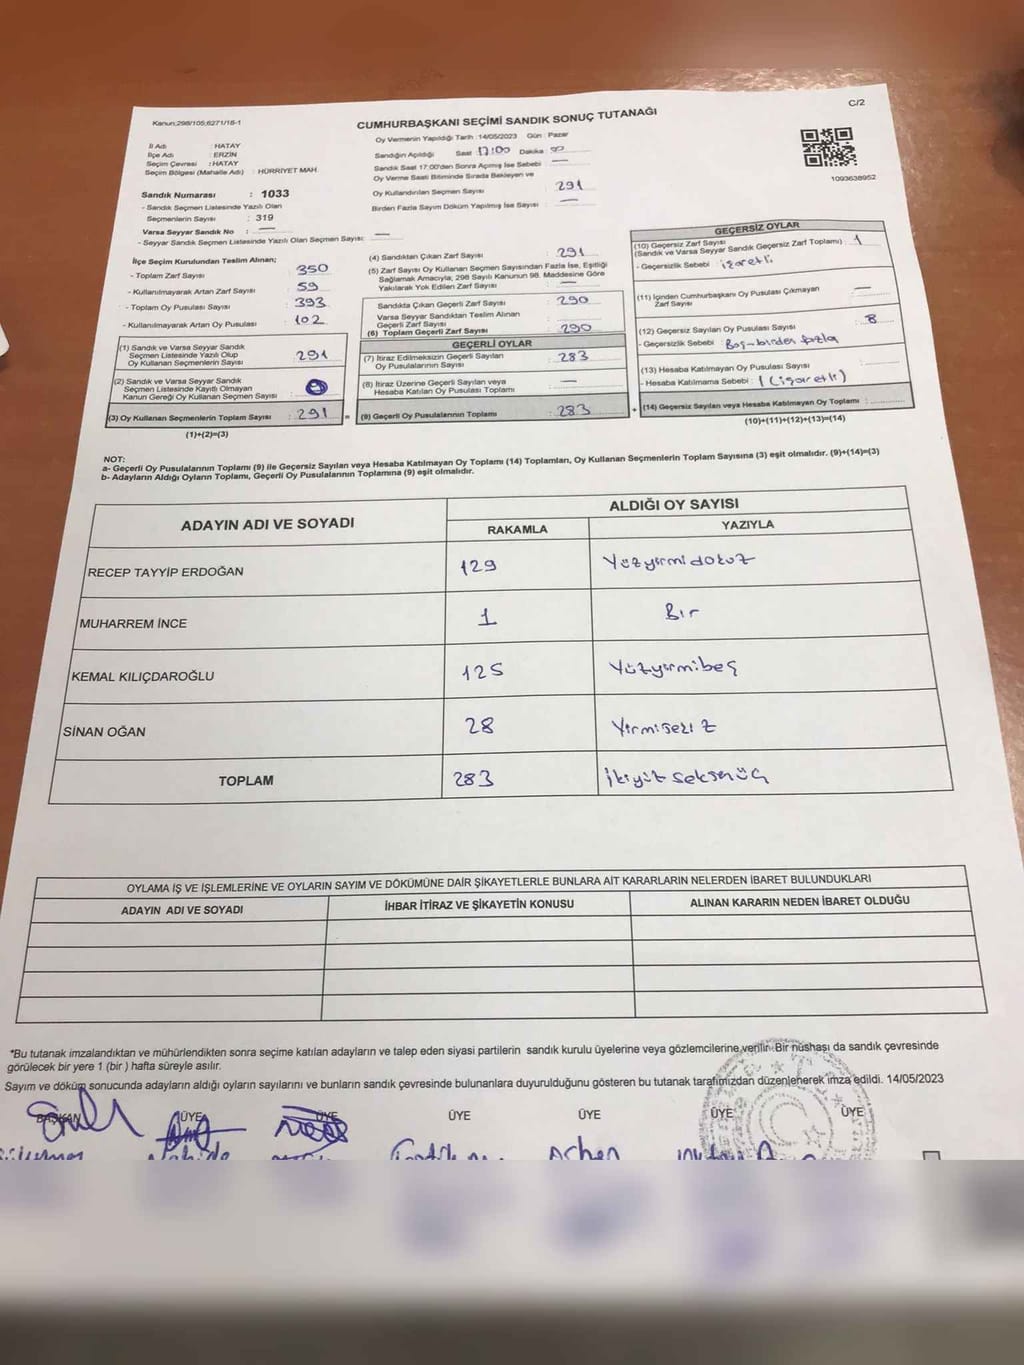 C/2
Kanun;298/105;6271/18-1
CUMHURBAŞKANI SEÇİMİ SANDIK SONUÇ TUTANAĞI
İl Adı : HATAY
İlçe Adı : ERZİN
Seçim Çevresi : HATAY
Seçim Bölgesi (Mahalle Adı) : HÜRRİYET MAH.
Sandık Numarası : 1033
- Sandık Seçmen Listesinde Yazılı Olan
Seçmenlerin Sayısı : 319
Varsa Seyyar Sandık No : —
- Seyyar Sandık Seçmen Listesinde Yazılı Olan Seçmen Sayısı: —
Oy Vermenin Yapıldığı Tarih :14/05/2023 Gün : Pazar
Sandığın Açıldığı Saat 17:00 Dakika 00
Sandık Saat 17:00'den Sonra Açılmış İse Sebebi : —
Oy Verme Saati Bitiminde Sırada Bekleyen ve
Oy Kullandırılan Seçmen Sayısı : 291
Birden Fazla Sayım Döküm Yapılmış İse Sayısı : —
1093638952
İlçe Seçim Kurulundan Teslim Alınan;
- Toplam Zarf Sayısı : 350
- Kullanılmayarak Artan Zarf Sayısı : 59
- Toplam Oy Pusulası Sayısı : 393
- Kullanılmayarak Artan Oy Pusulası : 102
(1) Sandık ve Varsa Seyyar Sandık
Seçmen Listesinde Yazılı Olup
Oy Kullanan Seçmenlerin Sayısı : 291
(2) Sandık ve Varsa Seyyar Sandık
Seçmen Listesinde Kayıtlı Olmayan
Kanun Gereği Oy Kullanan Seçmen Sayısı :
(3) Oy Kullanan Seçmenlerin Toplam Sayısı : 291 =
(1)+(2)=(3)
(4) Sandıktan Çıkan Zarf Sayısı : 291
(5) Zarf Sayısı Oy Kullanan Seçmen Sayısından Fazla İse, Eşitliği
Sağlamak Amacıyla; 298 Sayılı Kanunun 98. Maddesine Göre
Yakılarak Yok Edilen Zarf Sayısı : —
Sandıkta Çıkan Geçerli Zarf Sayısı : 290
Varsa Seyyar Sandıktan Teslim Alınan
Geçerli Zarf Sayısı :
(6) Toplam Geçerli Zarf Sayısı : 290
GEÇERLİ OYLAR
(7) İtiraz Edilmeksizin Geçerli Sayılan
Oy Pusulalarının Sayısı : 283
(8) İtiraz Üzerine Geçerli Sayılan veya
Hesaba Katılan Oy Pusulası Toplamı : —
(9) Geçerli Oy Pusulalarının Toplamı : 283 +
GEÇERSİZ OYLAR
(10) Geçersiz Zarf Sayısı
(Sandık ve Varsa Seyyar Sandık Geçersiz Zarf Toplamı) : 1
- Geçersizlik Sebebi : işaretli
(11) İçinden Cumhurbaşkanı Oy Pusulası Çıkmayan
Zarf Sayısı : —
(12) Geçersiz Sayılan Oy Pusulası Sayısı :
- Geçersizlik Sebebi : Boş-birden fazla
(13) Hesaba Katılmayan Oy Pusulası Sayısı :
- Hesaba Katılmama Sebebi : 1 (işaretli)
(14) Geçersiz Sayılan veya Hesaba Katılmayan Oy Toplamı :
(10)+(11)+(12)+(13)=(14)
NOT:
a- Geçerli Oy Pusulalarının Toplamı (9) ile Geçersiz Sayılan veya Hesaba Katılmayan Oy Toplamı (14) Toplamları, Oy Kullanan Seçmenlerin Toplam Sayısına (3) eşit olmalıdır. (9)+(14)=(3)
b- Adayların Aldığı Oyların Toplamı, Geçerli Oy Pusulalarının Toplamına (9) eşit olmalıdır.
ADAYIN ADI VE SOYADI
ALDIĞI OY SAYISI
RAKAMLA YAZIYLA
RECEP TAYYİP ERDOĞAN 129 Yüzyirmidokuz
MUHARREM İNCE 1 Bir
KEMAL KILIÇDAROĞLU 125 Yüzyirmibeş
SİNAN OĞAN 28 Yirmisekiz
TOPLAM 283 ikiyüz seksenüç
OYLAMA İŞ VE İŞLEMLERİNE VE OYLARIN SAYIM VE DÖKÜMÜNE DAİR ŞİKAYETLERLE BUNLARA AİT KARARLARIN NELERDEN İBARET BULUNDUKLARI
ADAYIN ADI VE SOYADI İHBAR İTİRAZ VE ŞİKAYETİN KONUSU ALINAN KARARIN NEDEN İBARET OLDUĞU
*Bu tutanak imzalandıktan ve mühürlendikten sonra seçime katılan adayların ve talep eden siyasi partilerin sandık kurulu üyelerine veya gözlemcilerine verilir. Bir nüshası da sandık çevresinde
görülecek bir yere 1 (bir) hafta süreyle asılır.
Sayım ve döküm sonucunda adayların aldığı oyların sayılarını ve bunların sandık çevresinde bulunanlara duyurulduğunu gösteren bu tutanak tarafımızdan düzenlenerek imza edildi. 14/05/2023
BAŞKAN ÜYE ÜYE ÜYE ÜYE ÜYE ÜYE